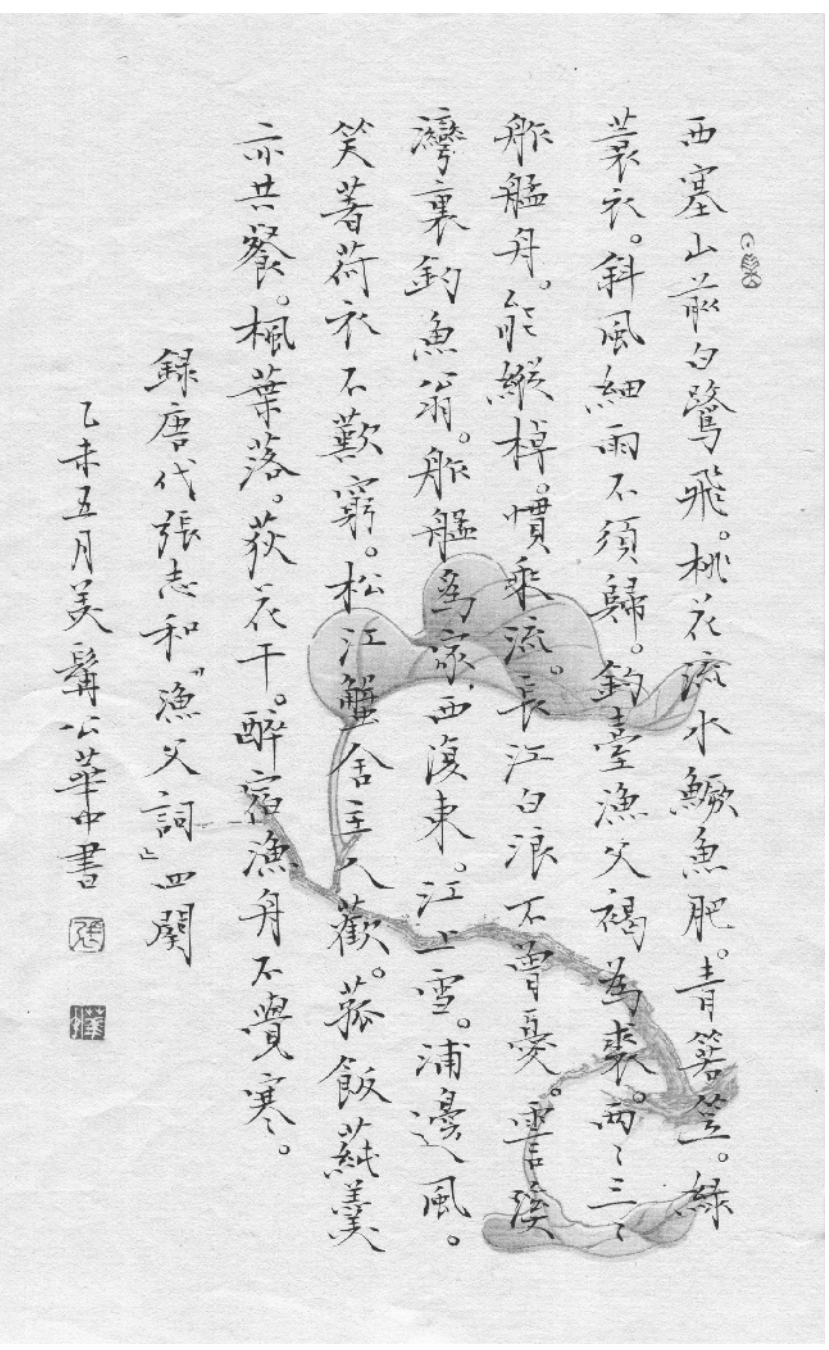 西塞山前白鷺飛。桃花流水鱖魚肥。青箬笠。綠
蓑衣。斜風細雨不須歸。釣臺漁父褐為裘。兩〻三〻
舴艋舟。能縱棹。慣乘流。長江白浪不曾憂。霅溪
灣裏釣魚翁。舴艋為家西復東。江上雪。浦邊風。
笑著荷衣不歎窮。松江蟹舍主人歡。菰飯蒓羹
亦共餐。楓葉落。荻花干。醉宿漁舟不覺寒。
錄唐代張志和『漁父詞』四闋
乙未五月美髯公華中書